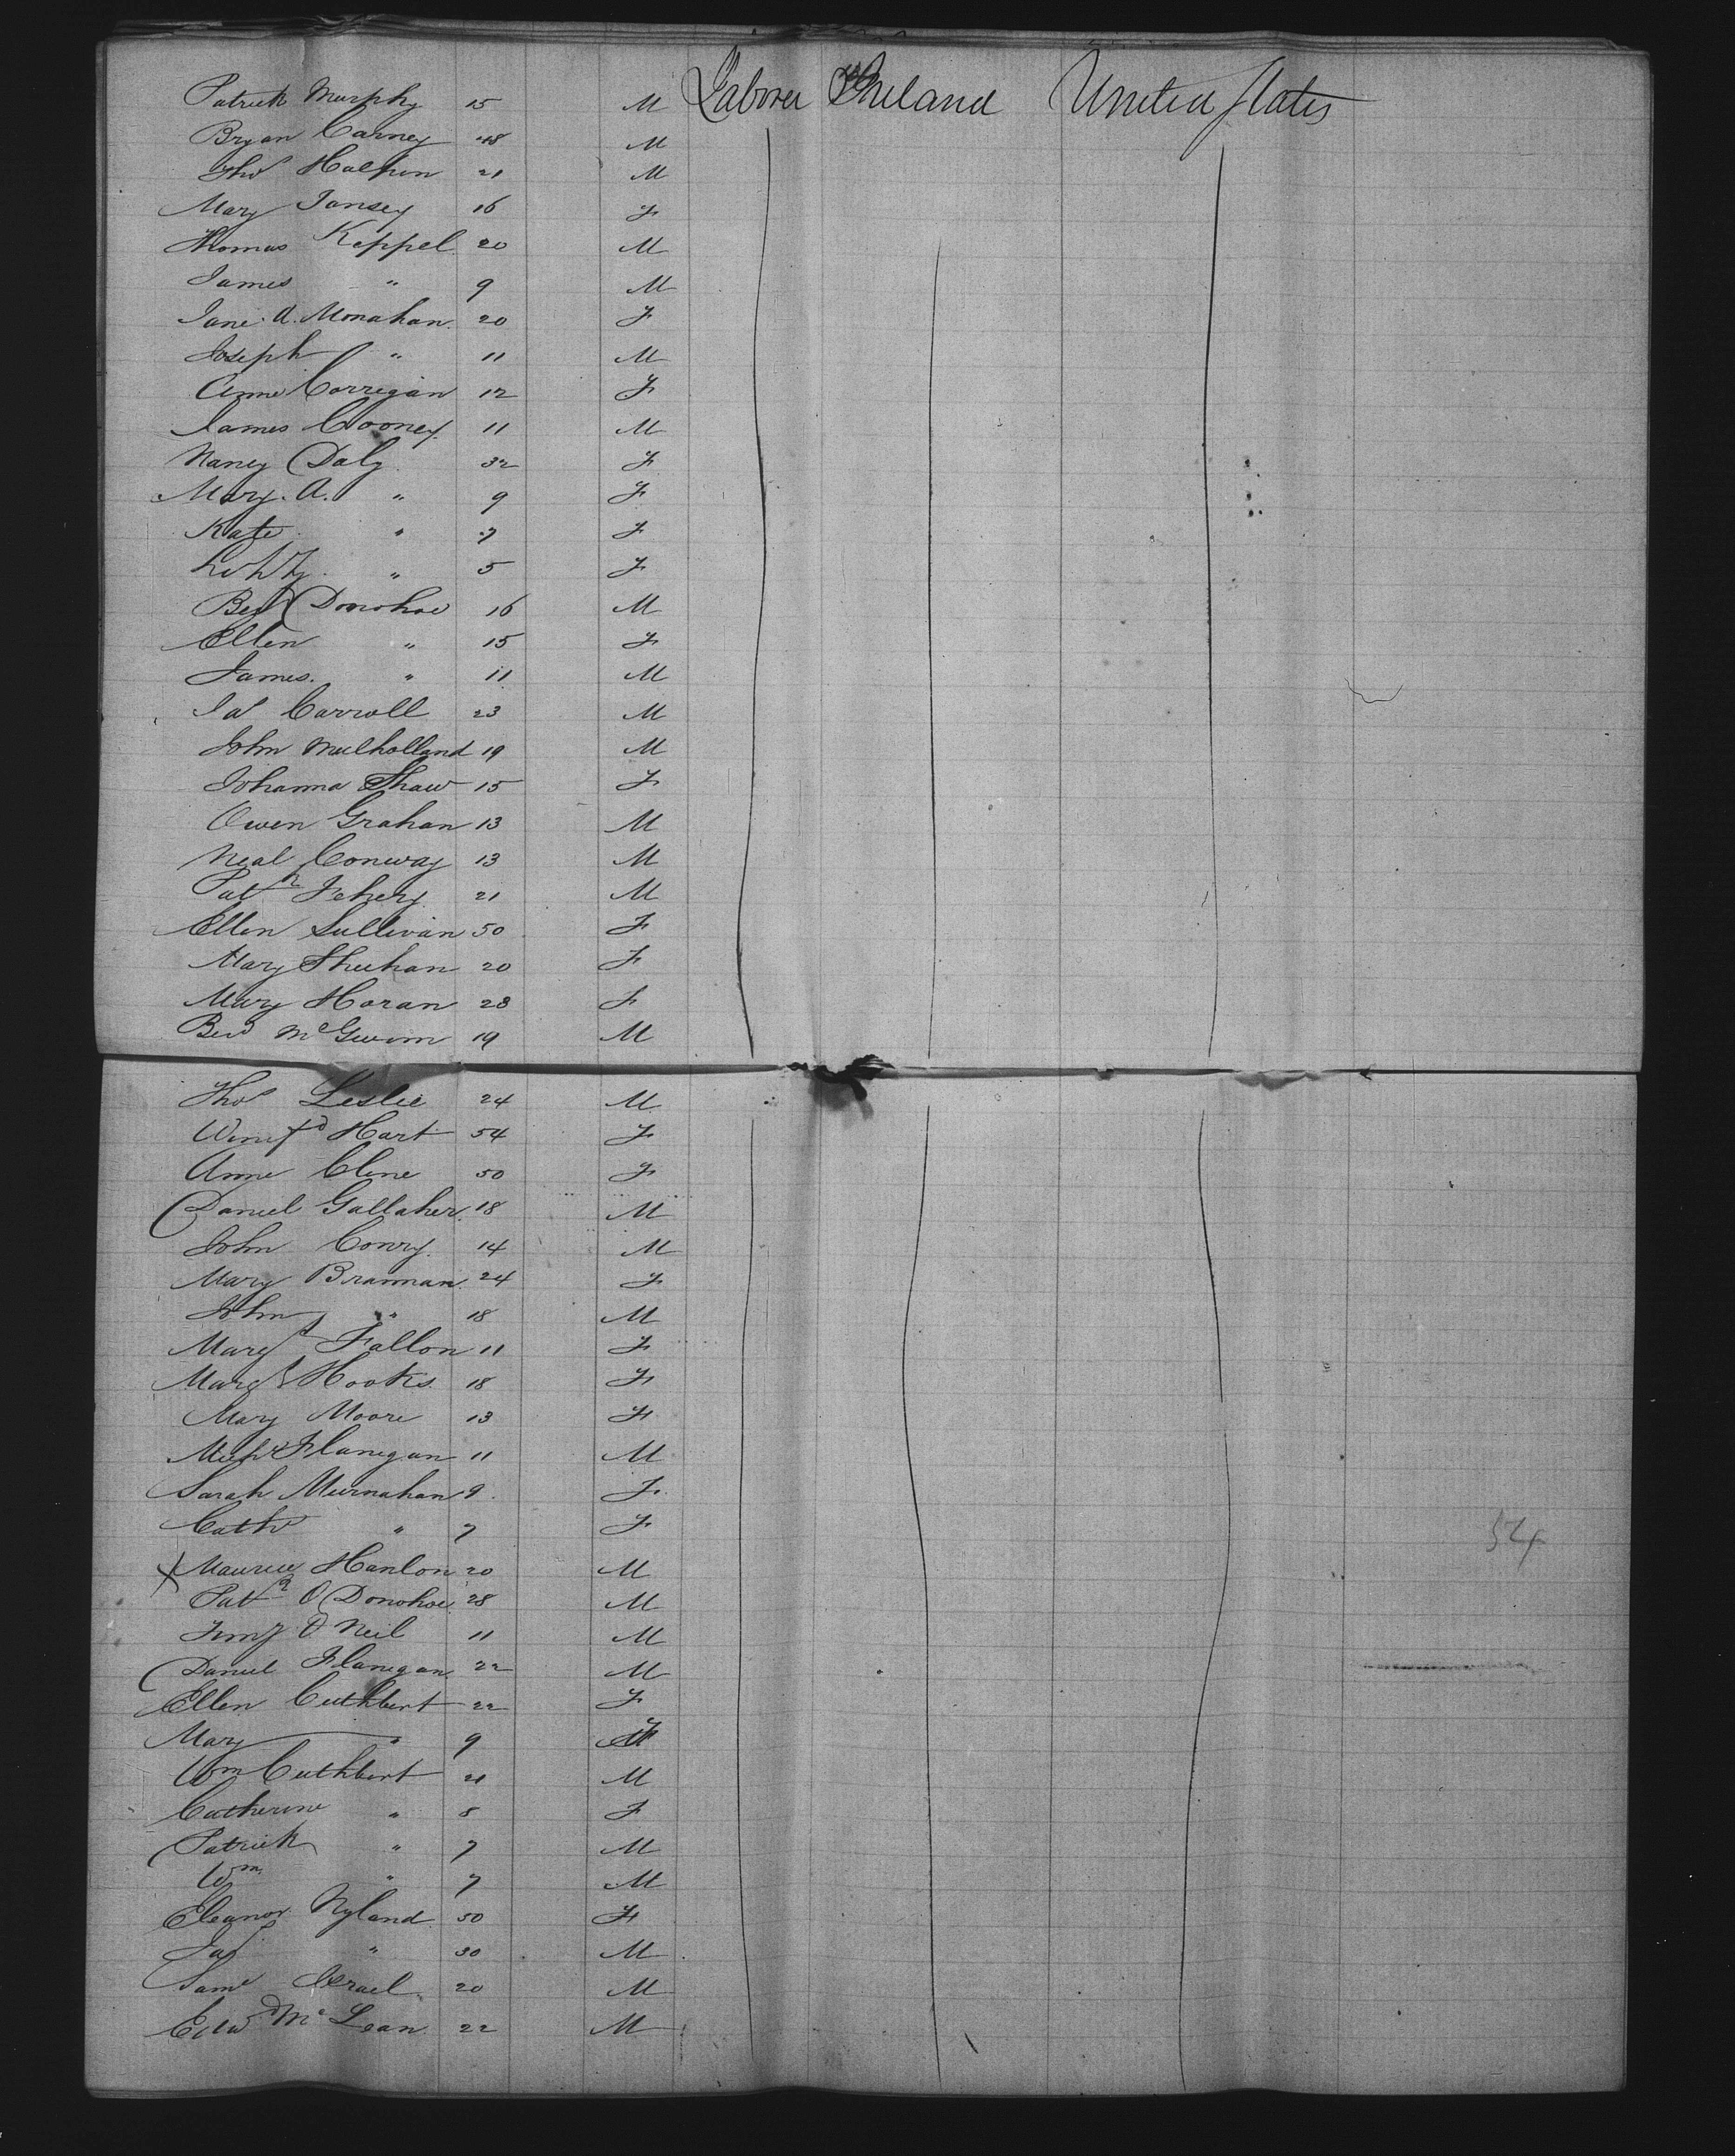 Patrick Murphy 15 M Laborer Ireland United States
Bryan Carney 48 M
Thos Halpin 21 M
Mary Tansey 16 F
Thomas Keppel 20 M
James " 9 M
Jane A. Monahan 20 F
Joseph " 11 M
Anne Corrigan 12 F
James Cooney 11 M
Nancy Daly 32 F
Mary A. " 9 F
Kate " 7 F
" 5 F
Bern Donohoe 16 M
Ellen " 15 F
James " 11 M
Jas Carroll 23 M
John Mulholland 19 M
Johanna Shaw 15 F
Owen Grahan 13 M
Neal Conway 13 M
Patk Fehery 21 M
Ellen Sullivan 50 F
Mary Sheehan 20 F
Mary Horan 28 F
Bernd 19 M
Thos Leslie 24 M
Winifd Hart 54 F
Anne Cline 50 F
Daniel Gallaher 18 M
John Conry 14 M
Mary Brannan 24 F
John " 18 M
Margt Fallon 11 F
Margt Hooks 18 F
Mary Moore 13 F
Michl Flanegan 11 M
Sarah Murnahan 9 F
Cathe " 7 F
X Maurice Hanlon 20 M
Patk O Donohoe 28 M
Timy O Neil 11 M
Daniel Flanegan 22 M
Ellen Cuthbert 22 F
Mary " 9 F
Wm Cuthbert 21 M
Catherine " 8 F
Patrick " 7 M
Wm " 7 M
Eleanor Nyland 50 F
Jas " 30 M
Saml Israel 20 M
Edwd McLean 22 M